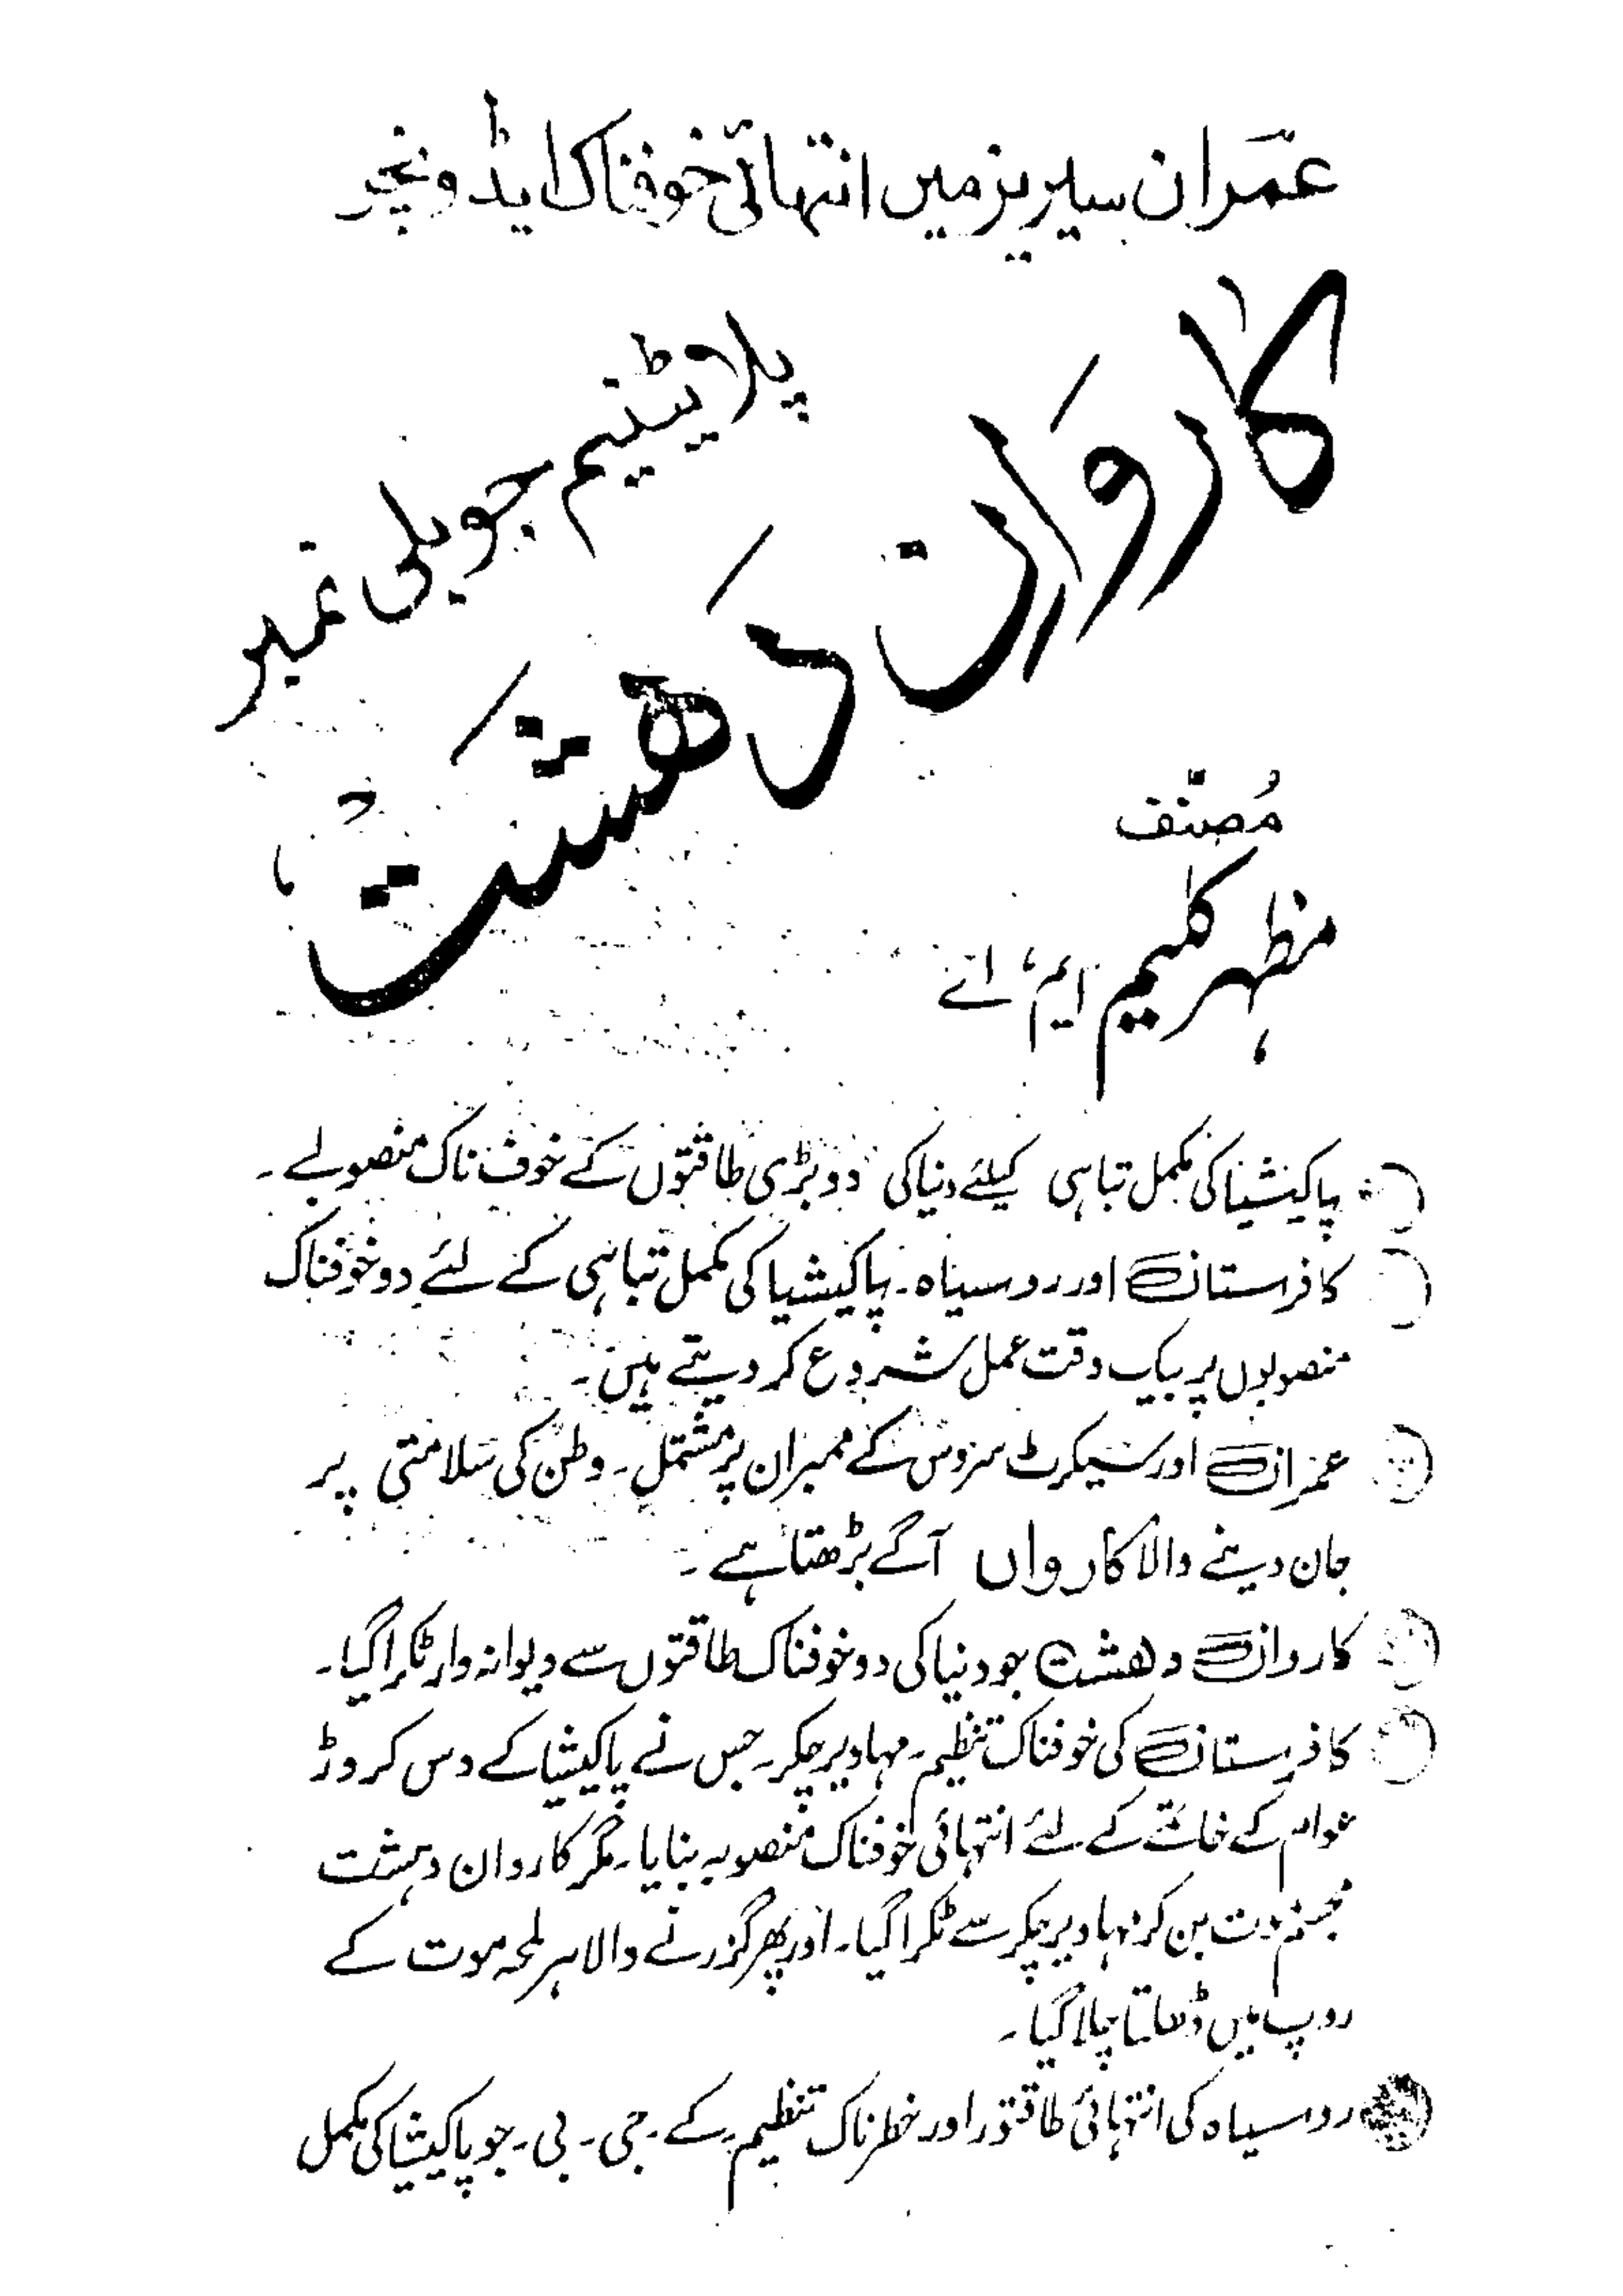 عمران سیریز میں انتہائی خوفناک ایڈونچر
پلاٹینم جوبلی نمبر
کاروان دہشت
مُصنّف
مظہر کلیم ایم، اے
پاکیشیا کی مکمل تباہی کیلئے دنیا کی دو بڑی طاقتوں کے خوف ناک منصوبے ۔
کافرستان اور روسیاہ ۔ پاکیشیا کی مکمل تباہی کے لئے دو خوفناک
منصوبوں پر بیک وقت عمل شروع کر دیتے ہیں ۔
عمران اور سیکرٹ سروس کے ممبران پر مشتمل ۔ وطن کی سلامتی پر
جان دینے والا کارواں آگے بڑھتا ہے ۔
کاروان دھشت جو دنیا کی دو خوفناک طاقتوں سے دیوانہ وار ٹکرا گیا ۔
کافرستان کی خوفناک تنظیم ۔ مہاویر چکر ۔ جس نے پاکیشیا کے دس کروڑ
عوام کے خاتمے کے لئے انتہائی خوفناک منصوبہ بنایا ۔ مگر کاروان دہشت
مجسم موت بن کر مہاویر چکر سے ٹکرا گیا ۔ اور پھر گزرنے والا ہر لمحہ موت کے
روپ میں ڈھلتا چلا گیا ۔
روسیاہ کی انتہائی طاقتور اور خطرناک تنظیم ۔ کے ۔ جی ۔ بی ۔ جو پاکیشیا کی مکمل